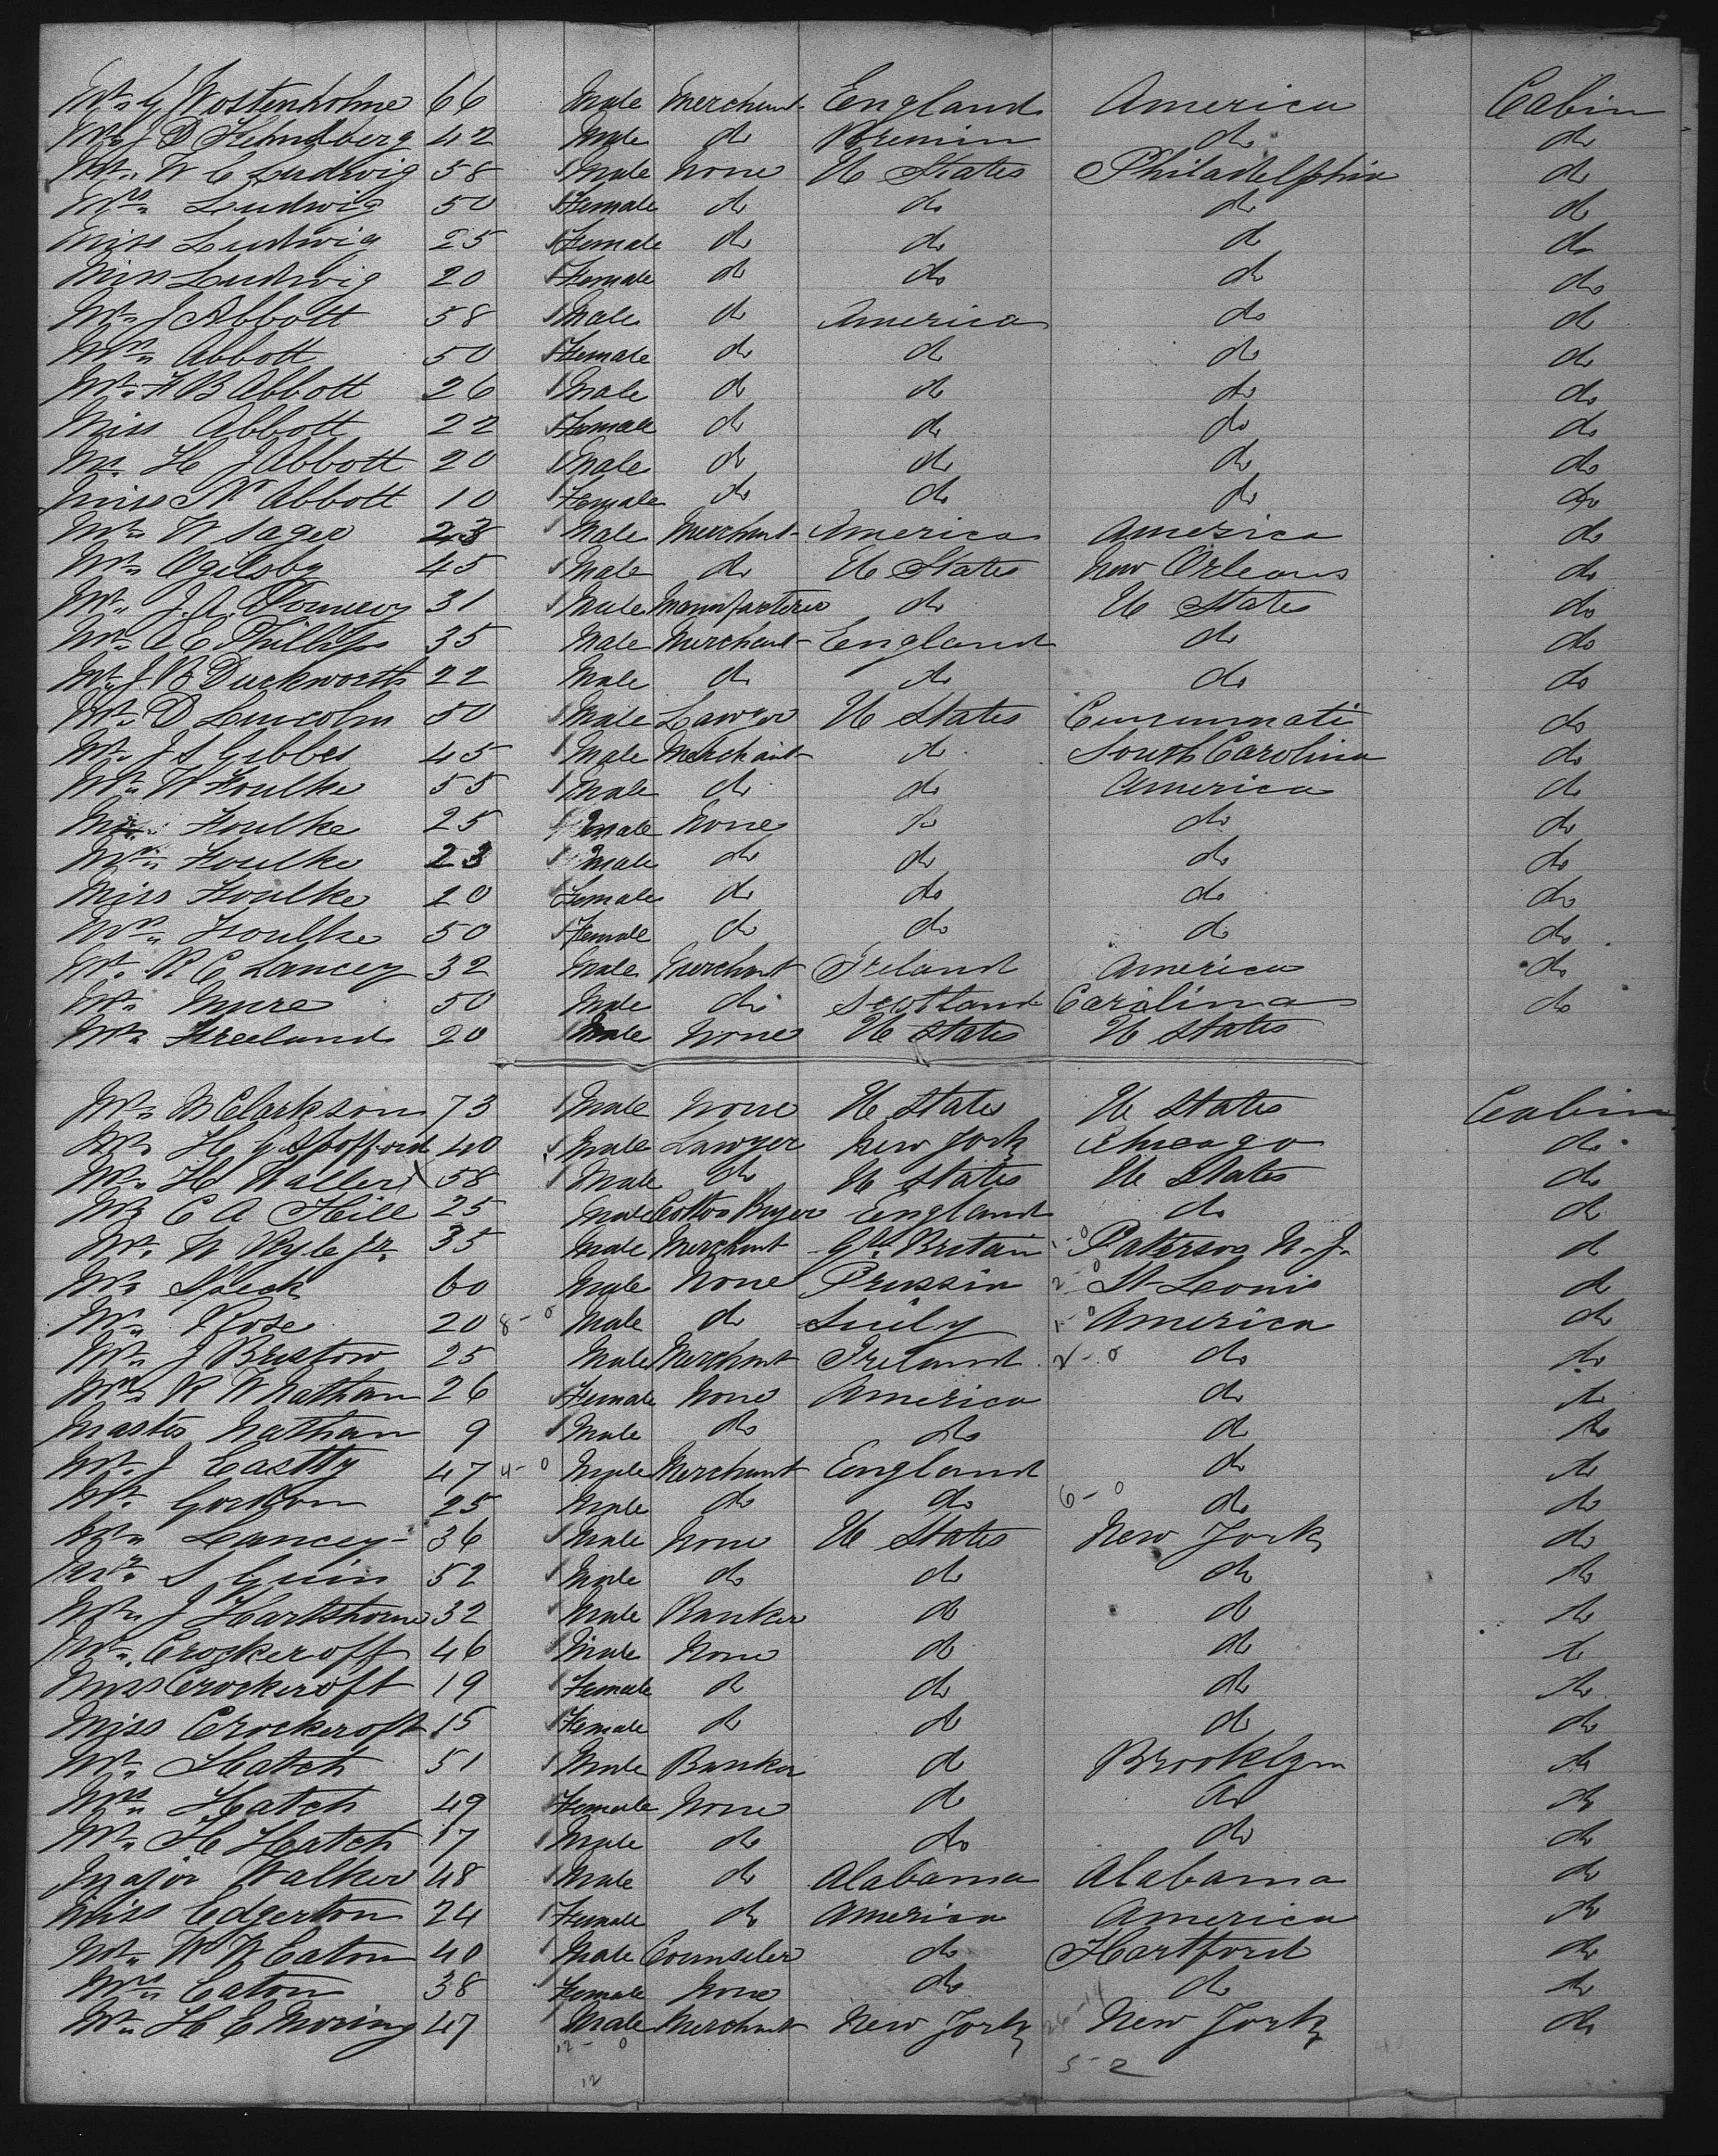 Mr. G Wostenholme 66 Male Merchant England America Cabin
Mr J D 42 Male do Bremin do do
Mr. W C Ludwig 58 Male None U States Philadelphia do
Mrs Ludwig 50 Female do do do do
Miss Ludwig 25 Female do do do do
Miss Ludwig 20 Female do do do do
Mr. J Abbott 58 Male do America do do
Mrs Abbott 50 Female do do do do
Mr. H B Abbott 26 Male do do do do
Miss Abbott 22 Female do do do do
Mr. H J Abbott 20 Male do do do do
Miss N Abbott 10 Female do do do do
Mr W Sager 23 Male Merchant America America do
Mr Ogilsby 45 Male do U States New Orleans do
Mr. J. A. 31 Male Manufacterer do U States do
Mr. C Phillips 35 Male Merchant England do do
Mr. J R Duckworth 22 Male do do do do
Mr. D Lincoln 50 Male Lawyer U States Cincinnati do
Mr. J S Gibbes 45 Male Merchant do South Carolina do
Mr. W Foulke 55 Male do do America do
Foulke 25 Male None do do do
Mr. Foulke 23 Male do do do do
Miss Foulke 20 Female do do do do
Mrs Foulke 50 Female do do do do
Mr. R C Lancey 32 Male Merchant Ireland America do
Mr. Mure 50 Male do Scotland Carolina do
Mr. Freeland 20 Male None U States U States
Mr. M Clarkson 73 Male None U States U States Cabin
Mr. H G Spofford 40 Male Lawyer New York Chicago do
Mr. H Waller 58 Male do U States U States do
Mr C A Hill 25 Male Cotton Buyer England do do
Mr. W Ryle Jr. 35 Male Merchant Gt Britain Paterson N.J. do
Mr. Speck 60 Male None Prussia 2-0 St Louis do
Mr. Rose 20 8-0 Male do Sicily 1-0 America do
Mr. J Bristow 25 Male Merchant Ireland 2-0 do do
Mrs R W Nathan 26 Female None America do do
Master Nathan 9 Male do do do do
Mr. J Eastty 47 4-0 Male Merchant England do do
Mr. Gordon 25 Male do do 6-0 do do
Mr. Lancey 36 Male None U States New York do
Mr. S Guin 52 Male do do do do
Mr. J Hartshorne 32 Male Banker do do do
Mr. Crockeroff 46 Male None do do do
Miss Crockeroft 19 Female do do do do
Miss Crockeroft 15 Female do do do do
Mr. Hatch 51 Male Banker do Brooklyn do
Mrs Hatch 49 Female None do do do
Mr. H Hatch 17 Male do do do do
Major Walker 48 Male do Alabama Alabama do
Miss Edgerton 24 Female do America America do
Mr. W W Eaton 40 Male Counseler do Hartford do
Mrs Eaton 38 Female None do do do
Mr. H E Moring 47 Male Merchant New York New York do
12-0 5-2
12